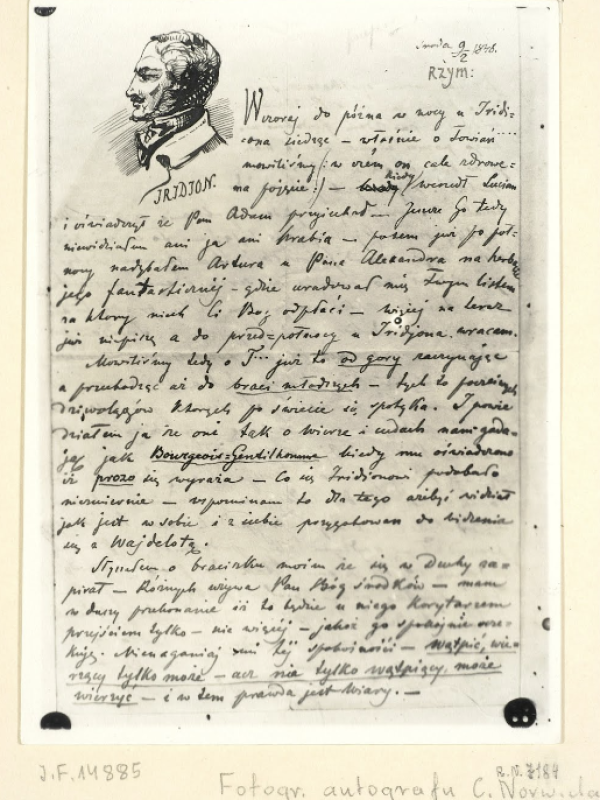 środa 9/2 1848.
Rzym:
IRIDION.
Wczoraj do późna w nocy u Iridi-
ona siedząc – właśnie o Towiań....
mówiliśmy /: w czém on całe zdrowe
ma pojęcie :/ – kiedy wszedł Lucian
i oświadczył że Pan Adam przyjechał – Jeszcze Go tedy
niewidziałem ani ja ani Hrabia – potem już po pół-
nocy nadybałem Artura u Pana Alexandra na herbacie
jego fantastycznéj – gdzie uradował mię Twym listem
za który niech Ci Bóg odpłaci – więcéj na teraz
już niepiszę a do przed=północy u Iridjona wracam.
Mówiliśmy tedy o T... już to od góry zaczynając
a przechodząc aż do braci młodszych – tych to
dziwolągów których po świecie się spotyka. I powie
działem ja że oni tak o wierze i cudach nam gada-
ją jak Bourgeois=Gentilhomme kiedy mu oświadczono
iż prozą się wyraża – Co się Iridionowi podobało
niezmiernie – wspominam to dla tego ażebyś widział
jak jest w sobie i z siebie przygotowan do widzenia
się z Wajdelotą.
Słyszałem o braciszku moim że się w Duchy za=
pisał – Różnych używa Pan Bóg środków – mam
w duszy przekonanie iż to będzie u niego korytarzem
przejściem tylko – nie więcéj – jakoż go spokojnie ocze-
kuję. Nienaganiaj mi téj spokojności – wątpić, wie-
rzący tylko może – acz nie tylko wątpiący, może
wierzyć – i w tem prawda jest Wiary. –
J.F. 14885
R.N. 7184
Fotogr. autografu C. Norwida